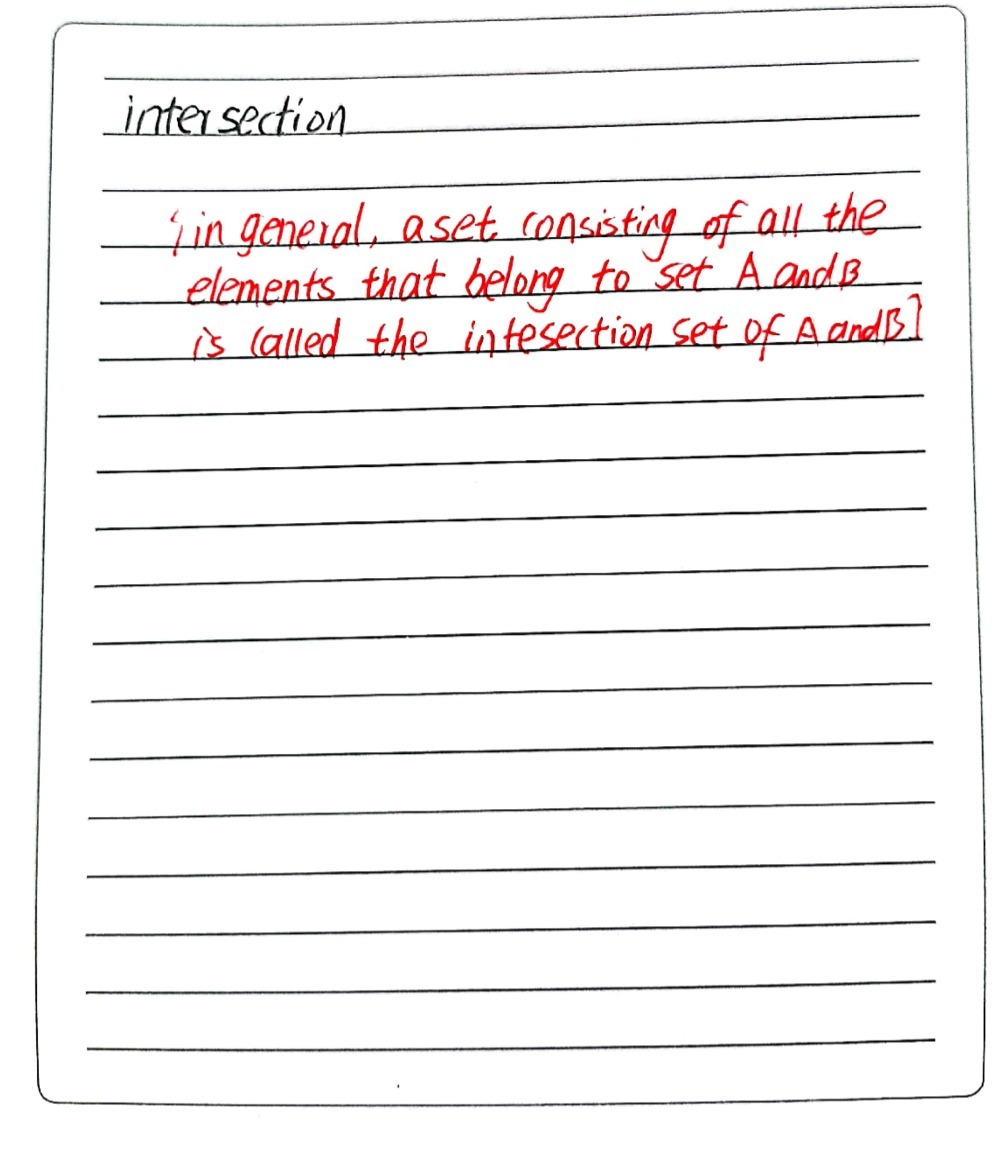 intersection
[in general, a set consisting of all the
elements that belong to set A and B
is called the intesection set of A and B]